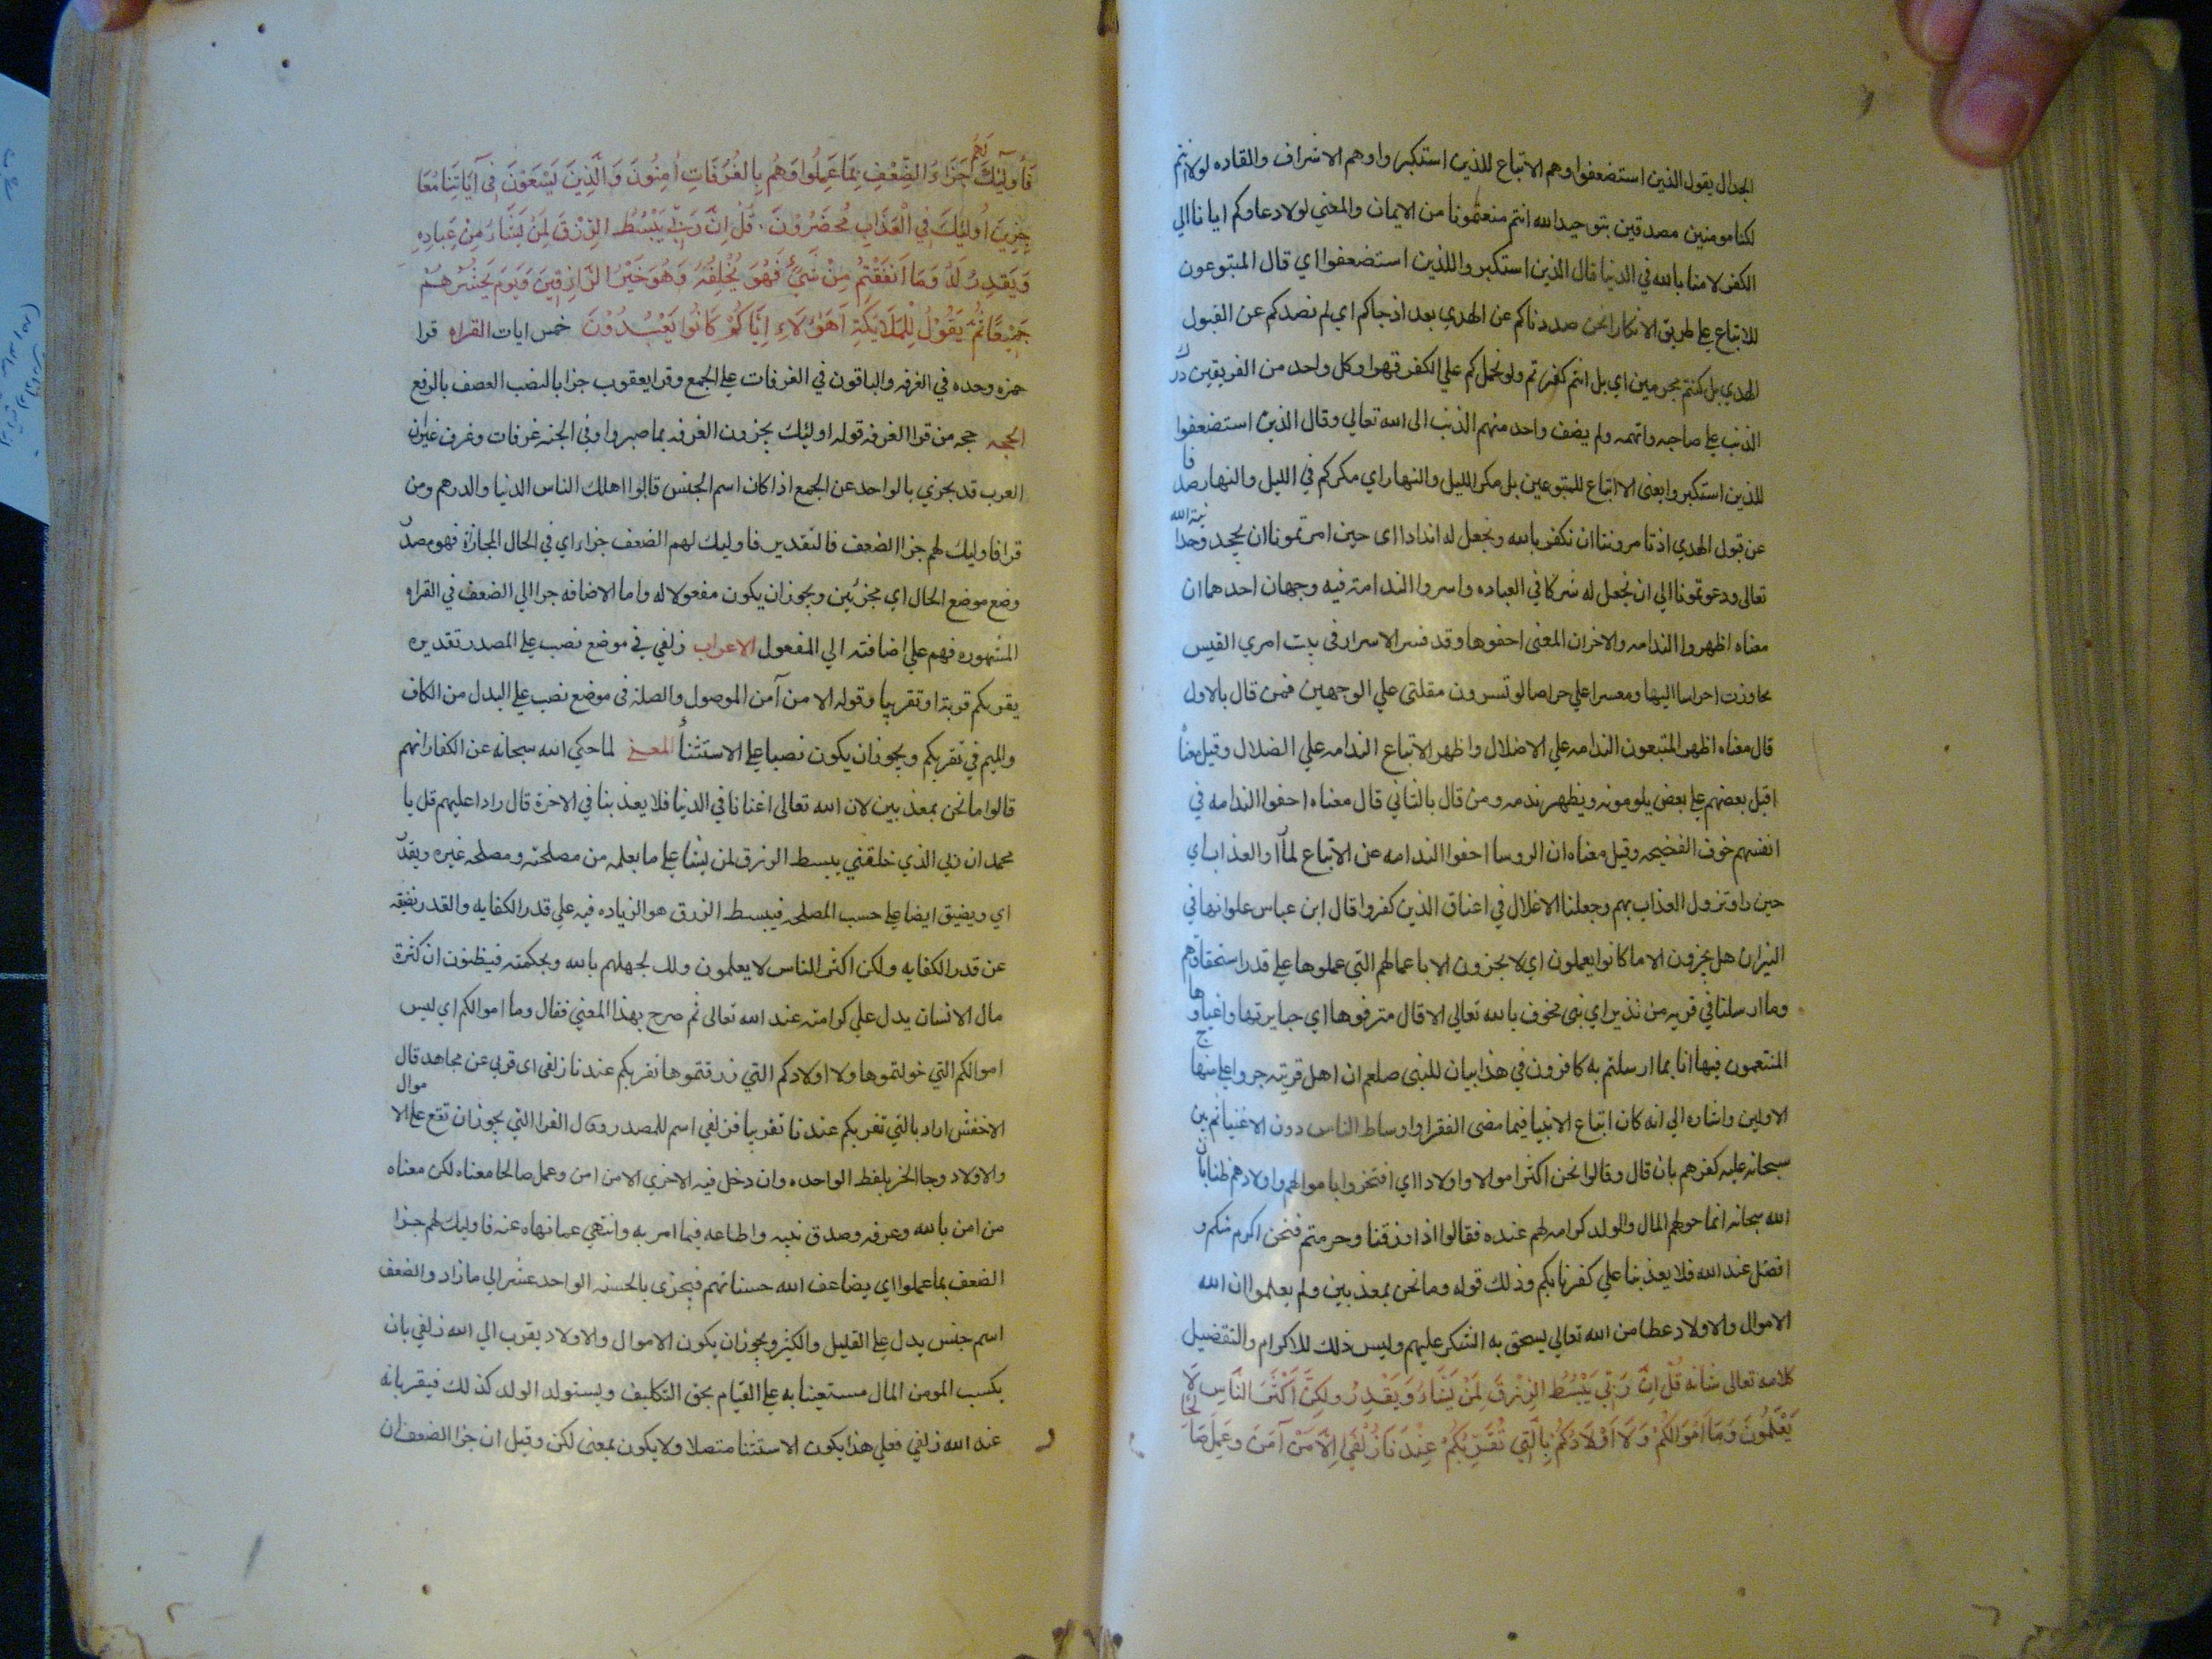 الجدال يقول الذين استضعفوا وهم الاتباع للذين استكبروا وهم الاشراف والقاده لولا انتم
لكنا مومنين مصدقين بتوحيد الله انتم منعتمونا من الايمان والمعني لولا دعاوكم ايانا الي
الكفر لامنا بالله في الدنيا قال الذين استكبروا للذين استضعفوا اي قال المتبوعون
للاتباع علي طريق الانكار انحن صددناكم عن الهدي بعد اذ جاكم اي لم نصدكم عن القبول
الهدي بل كنتم مجرمين اي بل انتم كفرتم ولم نحملكم علي الكفر قهرا وكل واحد من الفريقين ورك
الذنب علي صاحبه واتهمه ولم يضف واحد منهم الذنب الى الله تعالي وقال الذين استضعفوا
للذين استكبروا يعني الاتباع للمتبوعين بل مكر الليل والنهار اي مكركم في الليل والنهار صدنا
عن قبول الهدي اذ تامروننا ان نكفر بالله ونجعل له اندادا اى حين امرتمونا ان نجحد وحدانية الله
تعالى ودعوتمونا الي ان نجعل له شركا في العباده واسروا الندامة فيه وجهان احدهما ان
معناه اظهروا الندامه والاخر ان المعنى اخفوها وقد فسر الاسرار فى بيت امري القيس
تجاوزت احراسا اليها ومعسرا علي حراصا لو تسرون مقلتى علي الوجهين فمن قال بالاول
قال معناه اظهر المتبعون الندامه علي الاضلال واظهر الاتباع الندامه علي الضلال وقيل معناه
اقبل بعضهم علي بعض يلومونه ويظهر ندمه ومن قال بالثاني قال معناه اخفوا الندامه في
انفسهم خوف الفضيحه وقيل معناه ان الروسا اخفوا الندامه عن الاتباع لما راوا العذاب اي
حين راوا نزول العذاب بهم وجعلنا الاغلال في اعناق الذين كفروا قال ابن عباس غلوا بها في
النيران هل يجزون الا ما كانوا يعملون اي لا يجزون الا باعمالهم التي عملوها علي قدر استحقاقهم
وما ارسلنا في قريه من نذير اي نبى مخوف بالله تعالي الا قال مترفوها اي جبابرتها واغنياوها
المتنعمون فيها انا بما ارسلتم به كافرون في هذا بيان للنبى صلعم ان اهل قريته جروا علي منهاج
الاولين واشاره الي انه كان اتباع الانبيا فيما مضى الفقرا واوساط الناس دون الاغنيا ثم بين
سبحانه عليه كفرهم بان قال وقالوا نحن اكثر اموالا واولادا اي افتخروا باموالهم واولادهم ظنا بان
الله سبحانه انما خولهم المال والولد كرامه لهم عنده فقالوا اذا رزقنا وحرمتم فنحن اكرم منكم و
افضل عند الله فلا يعذبنا علي كفرنا بكم وذلك قوله وما نحن بمعذبين ولم يعلموا ان الله
الاموال والاولاد عطا من الله تعالي يستحق به الشكر عليهم وليس ذلك للاكرام والتفضيل
كلامه تعالى شانه قُلْ اِنَّ رَبِّي يَبْسُطُ الرِّزْقَ لِمَنْ يَشَاءُ وَيَقْدِرُ ولكِنَّ اَكْثَرَ النَّاسِ لَا
يَعْلَمُونَ وَمَا اَمْوَالُكُمْ وَلَا اَوْلَادُكُمْ بِالَّتِي تُقَرِّبُكُمْ عِنْدَنَا زُلْفَى اِلَّا مَنْ آمَنَ وَعَمِلَ صَالِحًا
فَأُولَئِكَ لَهُمْ جَزَاءُ الضِّعْفِ بِمَا عَمِلُوا وَهُمْ بِالْغُرُفَاتِ اٰمِنُونَ وَالَّذِينَ يَسْعَوْنَ فِي آيَاتِنَا مُعَا
جِزِينَ اُولئِكَ فِي الْعَذَابِ مُحْضَرُوْنَ قُلْ اِنَّ رَبِّي يَبْسُطُ الرِّزْقَ لِمَنْ يَشَاءُ مِنْ عِبَادِهِ
وَيَقْدِرُ لَهُ وَمَا اَنْفَقْتُمْ مِنْ شَيْءٍ فَهُوَ يُخْلِفُهُ وَهُوَ خَيْرُ الرَّازِقِينَ وَيَوْمَ يَحْشُرُهُمْ
جَمِيْعًا ثُمَّ يَقُوْلُ لِلْمَلَائِكَةِ اَهَؤُلَاءِ اِيَّاكُمْ كَانُوا يَعْبُدُوْنَ خمس ايات القراه قرا
حمزه وحده في الغرفه والباقون في الغرفات علي الجمع وقرا يعقوب جزا بالنصب الضعف بالرفع
الحجه حجه من قرا الغرفه قوله اوليك يجزون الغرفه بما صبروا وفي الجنه غرفات وغرف غير ان
العرب قد يجزي بالواحد عن الجمع اذا كان اسم الجنس قالوا اهلك الناس الدنيا والدرهم ومن
قرا فاوليك لهم جزا الضعف فالتقدير فاوليك لهم الضعف جزاء اي في الحال المجازاة فهو مصدر
وضع موضع الحال اي مجزئين ويجوز ان يكون مفعولا له واما الاضافه جزا الي الضعف في القراه
المشهوره فهم علي اضافته الي المفعول الاعراب زلفي في موضع نصب علي المصدر تقديره
يقربكم قربة او تقريبا وقوله الا من آمن الموصول والصلة فى موضع نصب علي البدل من الكاف
والميم في تقربكم ويجوز ان يكون نصبا علي الاستثنا المعني لما حكي الله سبحانه عن الكفار انهم
قالوا ما نحن بمعذبين لان الله تعالى اغنانا في الدنيا فلا يعذبنا في الاخرة قال رادا عليهم قل يا
محمد ان ربي الذي خلقني يبسط الرزق لمن يشا علي ما يعلمه من مصلحته ومصلحه غيره ويقدر
اي ويضيق ايضا علي حسب المصلحه فيبسط الرزق هو الزياده فيه علي قدر الكفايه والقدر تضيقه
عن قدر الكفايه ولكن اكثر الناس لا يعلمون ذلك لجهلهم بالله وبحكمته فيظنون ان كثرة
مال الانسان يدل علي كرامته عند الله تعالى ثم صرح بهذا المعني فقال وما اموالكم اي ليس
اموالكم التي خولتموها ولا اولادكم التي رزقتموها تقربكم عندنا زلفي اى قربي عن مجاهد قال
الاخفش اراد بالتي تقربكم عندنا تقريبا فزلفي اسم للمصدر وقال الفرا التي يجوز ان تقع علي الاموال
والاولاد وجا الخبر بلفظ الواحده وان دخل فيه الاخري الا من امن وعمل صالحا معناه لكن معناه
من امن بالله وعرفه وصدق نبيه واطاعه فيما امر به وانتهي عما نهاه عنه فاوليك لهم جزا
الضعف بما عملوا اي يضاعف الله حسناتهم فيجزى بالحسنه الواحد عشر الي ما زاد والضعف
اسم جنس يدل علي القليل والكثير ويجوز ان يكون الاموال والاولاد يقرب الي الله زلفي بان
يكسب المومن المال مستعينا به علي القيام بحق التكليف ويستولد الولد كذلك فيقربانه
عند الله زلفي فعلي هذا يكون الاستثنا متصلا ولا يكون بمعنى لكن وقيل ان جزا الضعف ان